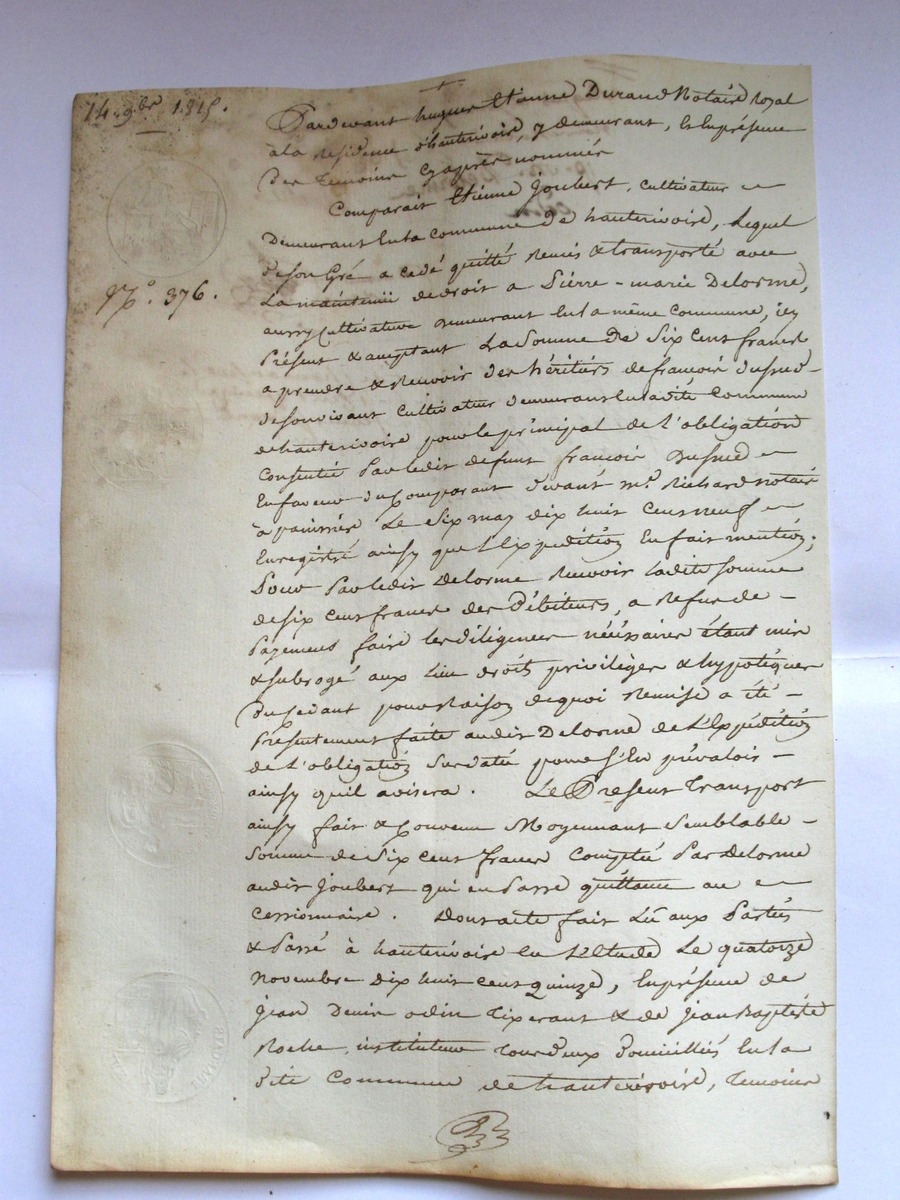 14. 9bre 1815.
Pardevant hugues Etienne Durand Notaire Royal
à la residence d'hauterivoire, y demeurant, En présence
des temoins cy après nommés
Comparait Etienne Joubert, cultivateur
Demeurant En la commune de hauterivoire, Lequel
de son Gré a cédé quitté Remis & transporté avec
N.º 376.
La maintenue de droit a Pierre-marie Delorme,
aussy Cultivateur demeurant En la même commune, icy
Présent & acceptant La Somme De Six Cent francs
a prendre & Recevoir des héritiers de françois
de son vivant Cultivateur demeurant En la dite Commune
de hauterivoire pour le principal de L'obligation
Consentie Par ledit défunt françois
En faveur du Comparant devant me. Richard notaire
à panissières Le Six may dix huit Cent neuf
Enregistré ainsy que l'Expédition En fait mention,
Pour Par ledit Delorme Recevoir ladite Somme
de six cent francs des Débiteurs, a Refus de
Payement faire les diligences nécéssaires étant mis
& subrogé aux Lieu droits priviléges & hypotéques
du Cédant pour Raison de quoi Remise a été
Présentement faite audit Delorme de L'Expédition
de L'obligation Sus datée pour s'En prévaloir
ainsy qu'il avisera. Le Présent Transport
ainsy fait & Convenu Moyennant Semblable
Somme de Six Cent francs Comptée Par Delorme
audit Joubert qui en Passe quittance au
Cessionnaire. Dont acte fait Lu aux Parties
& Passé à hauterivoire En L'Etude Le quatorze
Novembre Dix huit Cent Quinze, En présence de
Jean Denis odin Tixerant & de Jean Baptiste
Roche, instituteur tous deux domiciliés En la
dite Commune de hauterivoire, Temoins